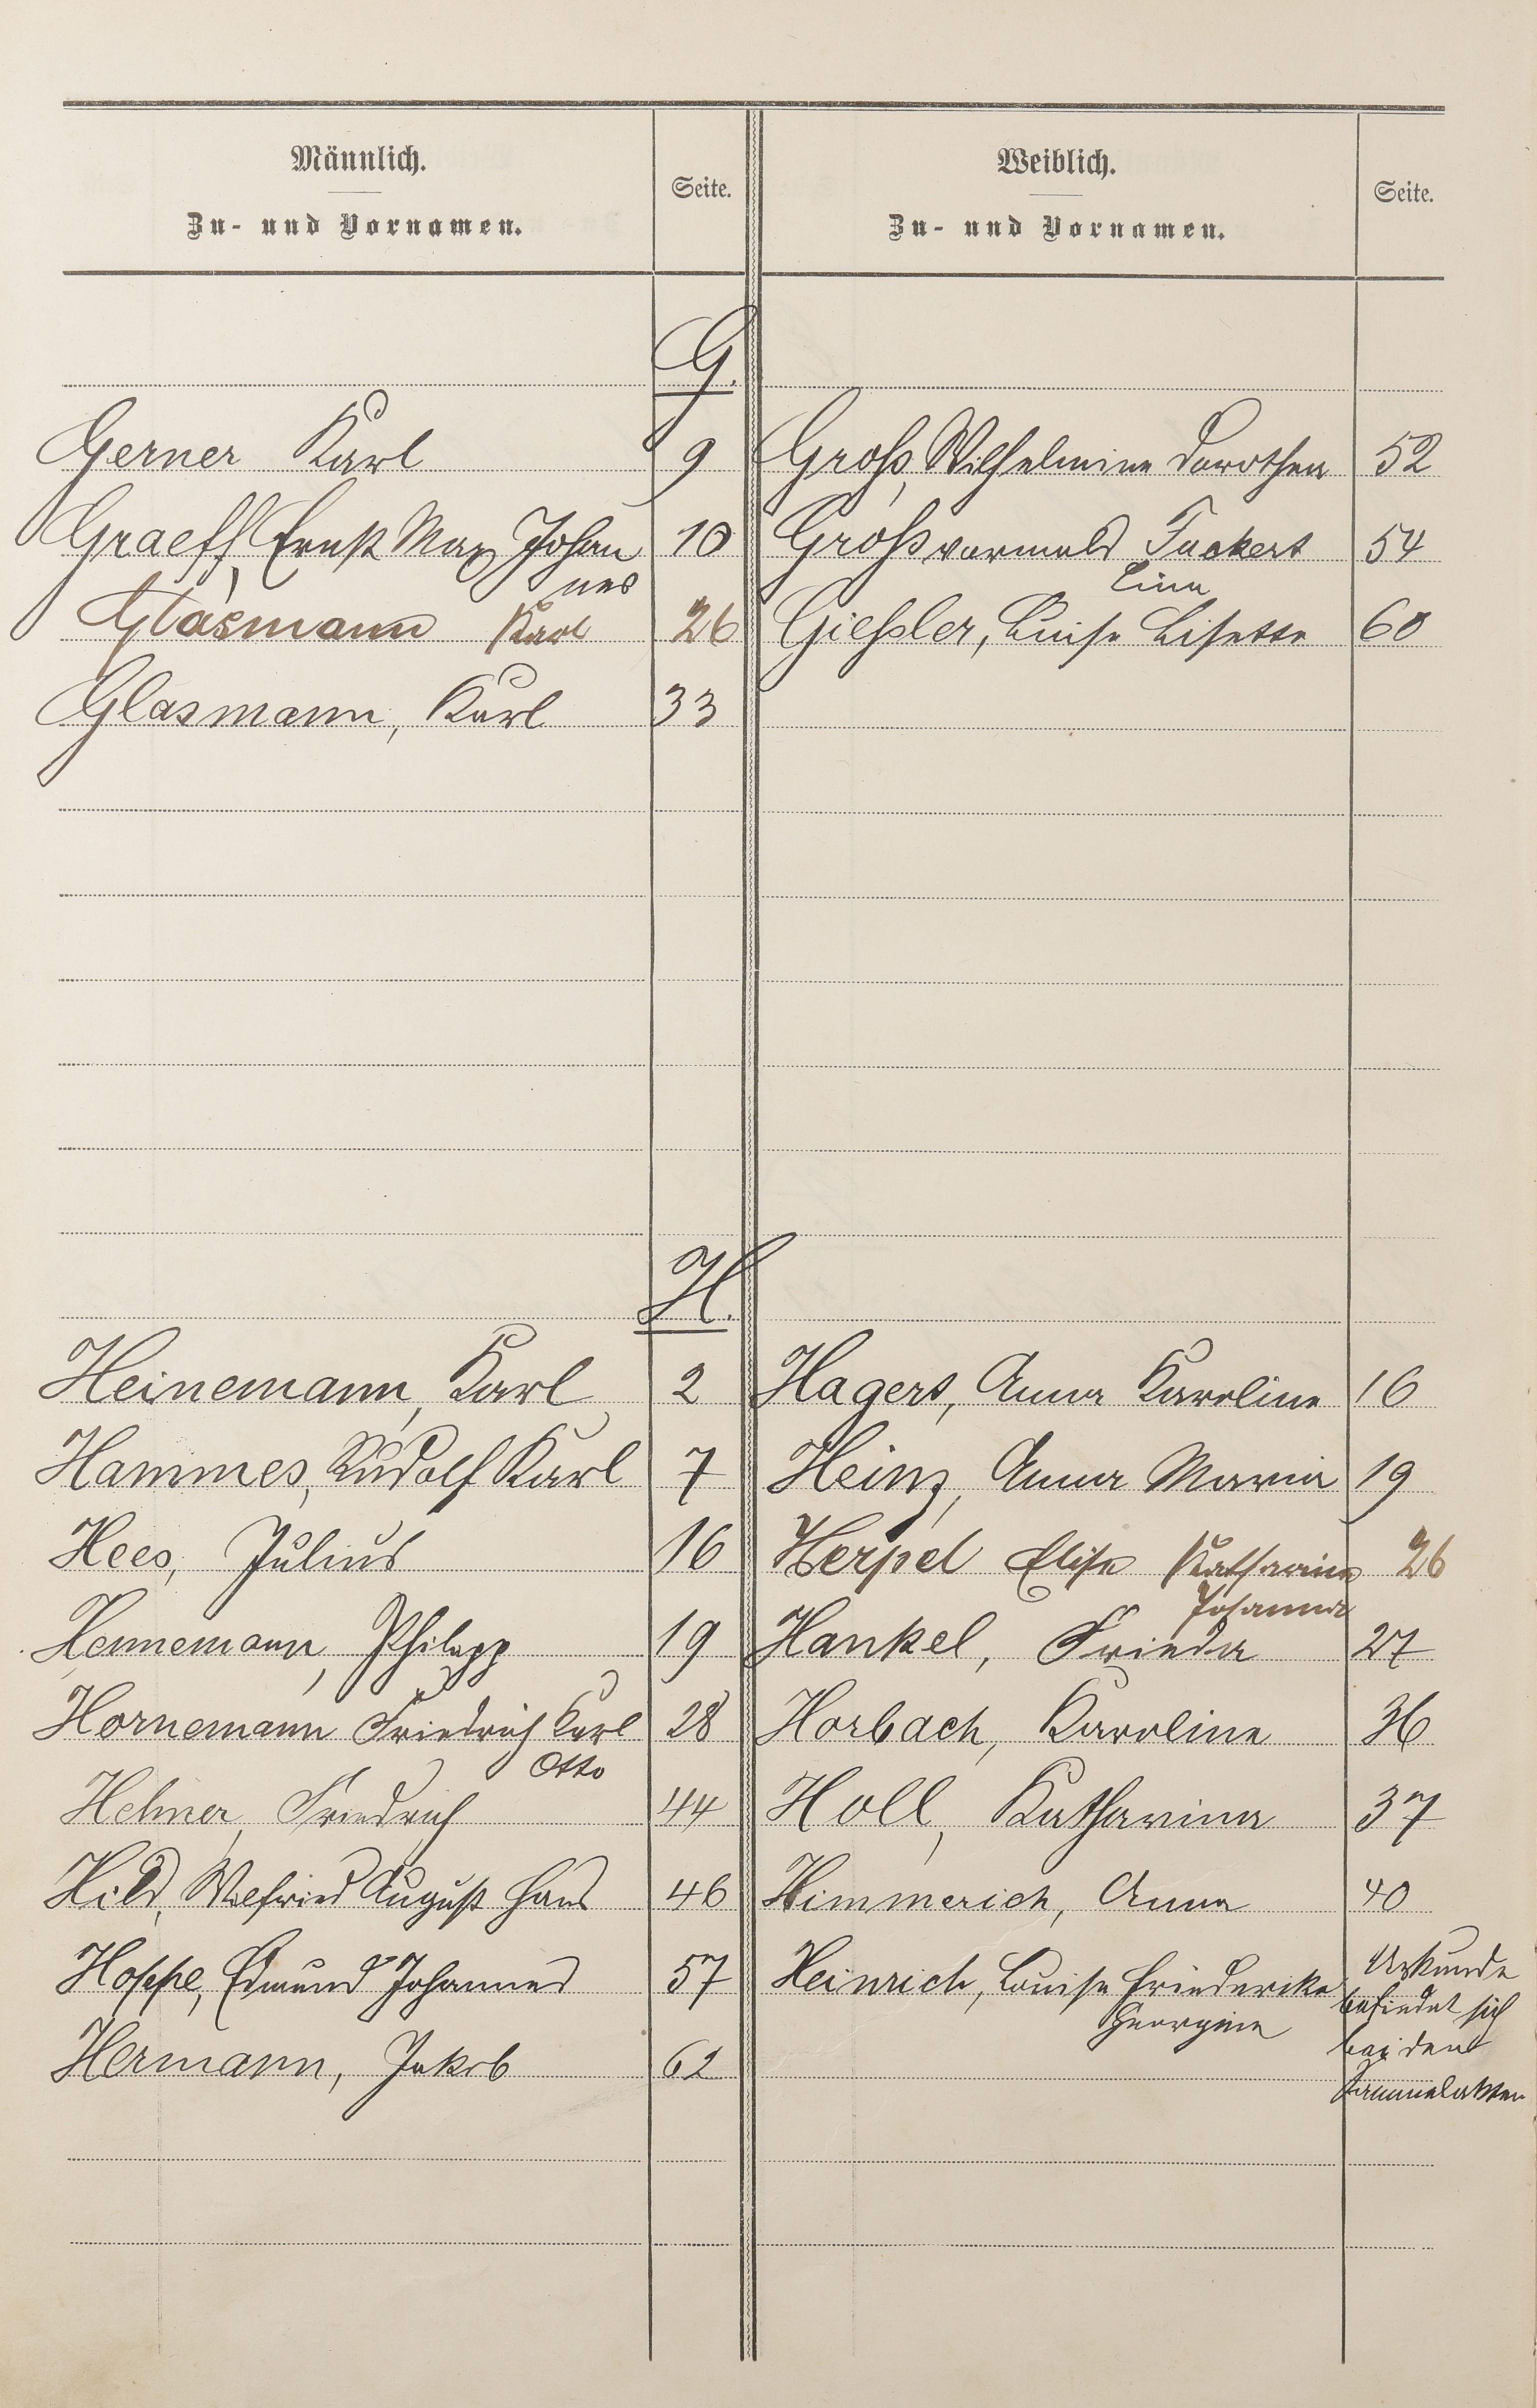 Männlich.
Zu- und Vornamen.
Seite.
Weiblich.
Zu- und Vornamen.
Seite.
G.
Gerner Karl 9 Groß, Wilhelmine Dorothea 52
Graeff, Ernst Max Johan 10 Groß vormals Fackert 54
nes Lina
Glasmann Karl 26 Gießler, Luise Lisette 60
Glasmann, Karl 33
H.
Heinemann, Karl 2 Hagert, Anna Karoline 16
Hammes, Rudolf Karl 7 Heinz, Anna Maria 19
Hees, Julius 16 Herpel Elise Katharine 26
Johanna
Hennemann, Philipp 19 Hankel, Frieda 27
Hornemann Friedrich Karl 28 Horbach, Karoline 36
Otto
Helmer, Friedrich 44 Holl, Katharina 37
Hild, Wilfried August Hans 46 Himmerich, Anna 40
Hoppe, Edmund Johannes 57 Heinrich, Louise Friedericke Urkunde
Georgine befindet sich
Hermann, Jakob 62 bei den
Sammelakten